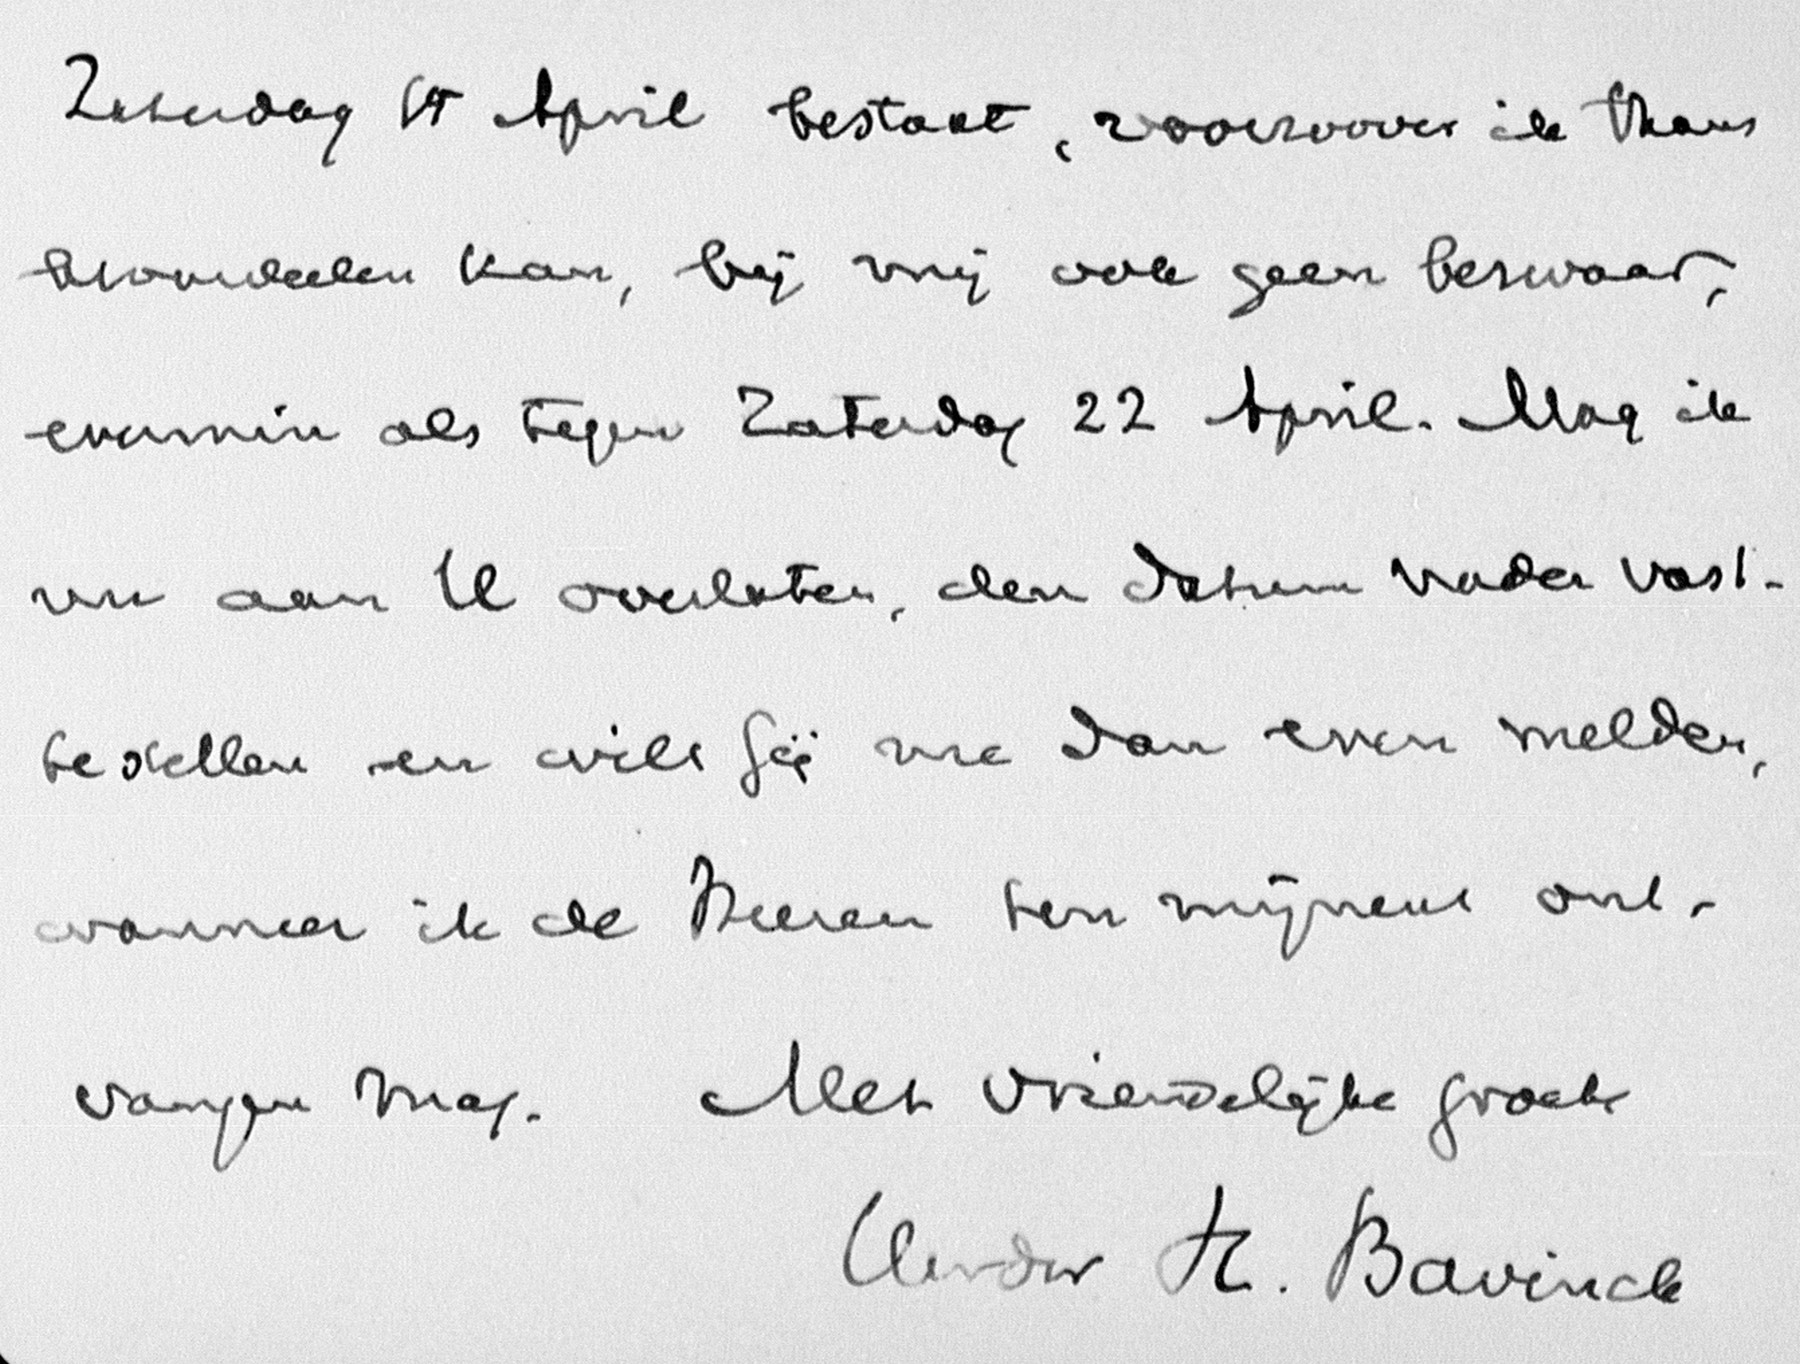 Zaterdag 15 April bestaat, voorzoover ik thans
beoordeelen kan, bij mij ook geen bezwaar,
evenmin als tegen Zaterdag 22 April. Mag ik
nu aan U overlaten, den datum nader vast-
te stellen en wilt gij me dan even melden,
wanneer ik de Heeren ten mijnent ont-
vangen mag. Met vriendelijke groete
H. Bavinck